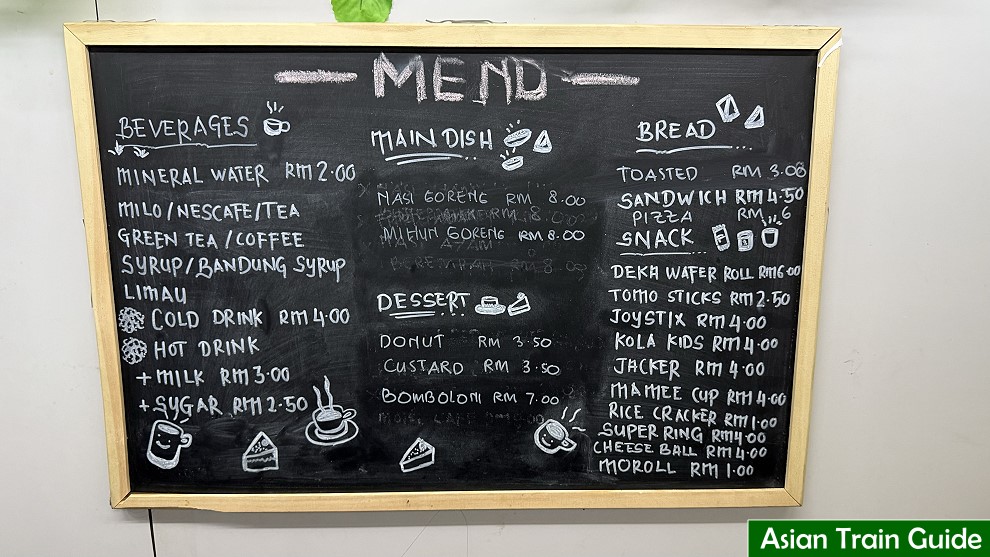 MENU
BEVERAGES
MINERAL WATER RM 2.00
MILO/NESCAFE/TEA
GREEN TEA/COFFEE
SYRUP/BANDUNG SYRUP
LIMAU
COLD DRINK RM 4.00
HOT DRINK
+ MILK RM 3.00
+ SUGAR RM 2.50
MAIN DISH
NASI GORENG RM 8.00
MIHUN GORENG RM 8.00
DESSERT
DONUT RM 3.50
CUSTARD RM 3.50
BOMBOLONI RM 7.00
BREAD
TOASTED RM 3.00
SANDWICH RM 4.50
PIZZA RM 6
SNACK
DEKA WAFER ROLL RM 6.00
TOMO STICKS RM 2.50
JOYSTIX RM 4.00
KOLA KIDS RM 4.00
JACKER RM 4.00
MAMEE CUP RM 4.00
RICE CRACKER RM 1.00
SUPER RING RM 4.00
CHEESE BALL RM 4.00
MOROLL RM 1.00
Asian Train Guide